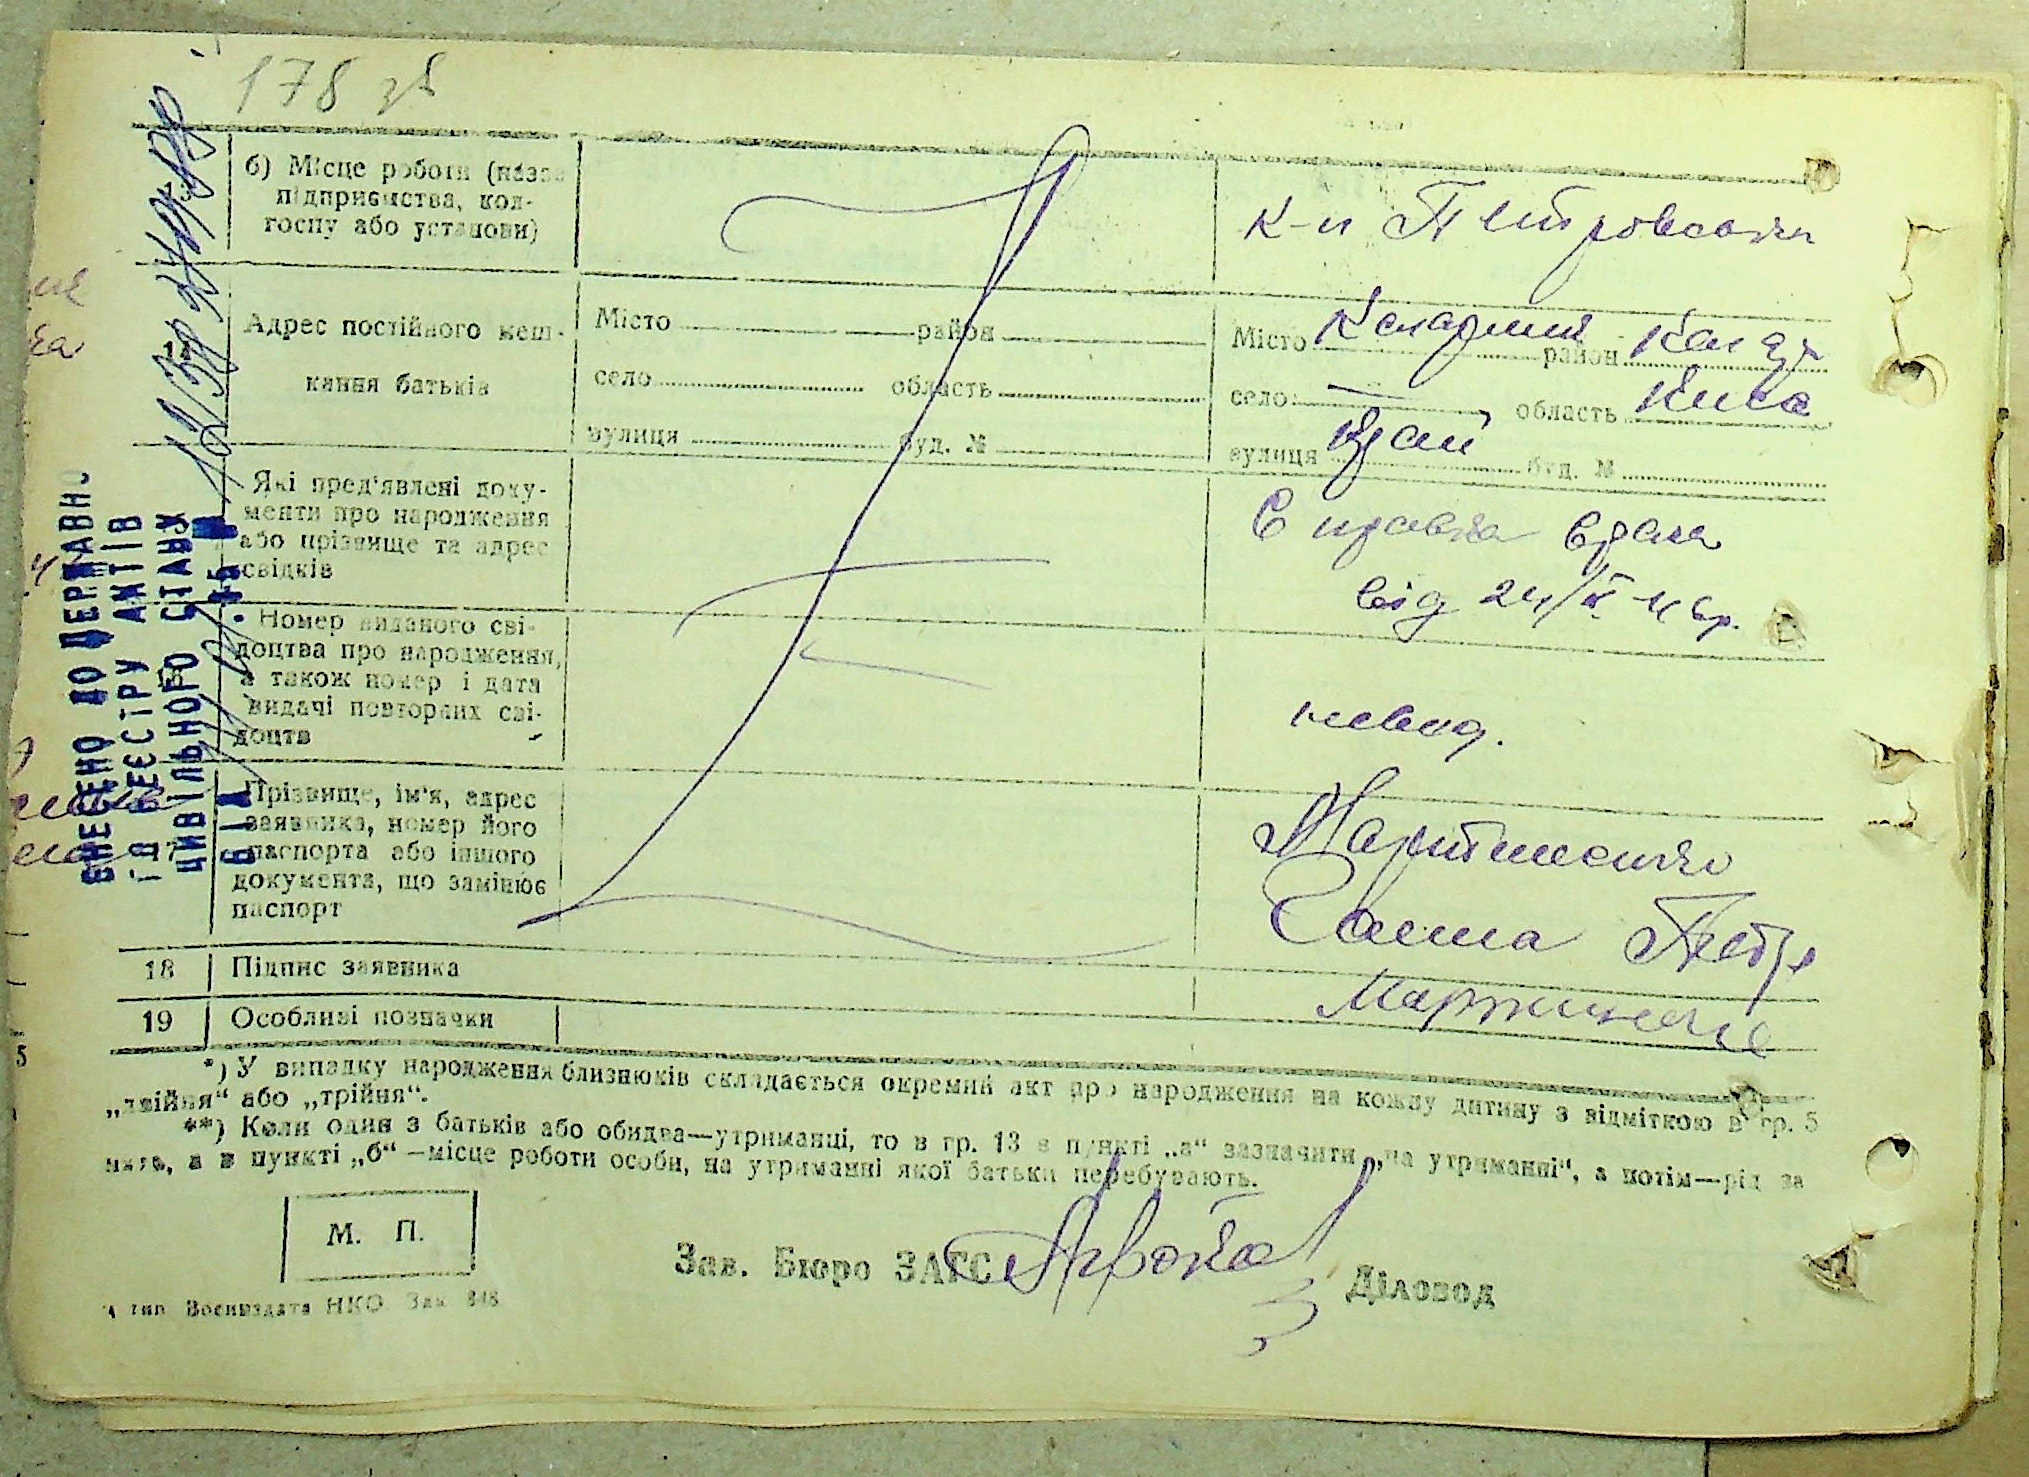 178 зв
б) Місце роботи (назва
підприємства, кол-
госпу або установи)
к-п Петровського
Адрес постійного меш-
кання батьків
Місто район
село область
вулиця буд. №
Місто район
село — область Київ
вулиця буд. №
Які пред'явлені доку-
менти про народження
або прізвище та адрес
свідків
Справка врача
від 24/ІХ
Номер виданого сві-
доцтва про народження,
а також номер і дата
видачі повторних сві-
доцтв
16
17
Прізвище, ім'я, адрес
заявника, номер його
паспорта або іншого
документа, що замінює
паспорт
Мартиненко
Ганна Петр
18 Підпис заявника
Мартиненко
19 Особливі позначки
*) У випадку народження близнюків складається окремий акт про народження на кожну дитину з відміткою в гр. 5
„двійня“ або „трійня“.
**) Коли один з батьків або обидва—утриманці, то в гр. 13 в пункті „а“ зазначити „на утриманні“, а потім—рід за
нять, а в пункті „б“—місце роботи особи, на утриманні якої батьки перебувають.
М. П.
Зав. Бюро ЗАГС
Діловод
тип. Воениздата НКО Зак 848
ВНЕСЕНО ДО ДЕРЖАВНО
ГО РЕЄСТРУ АКТІВ
ЦИВІЛЬНОГО СТАНУ
ВІД